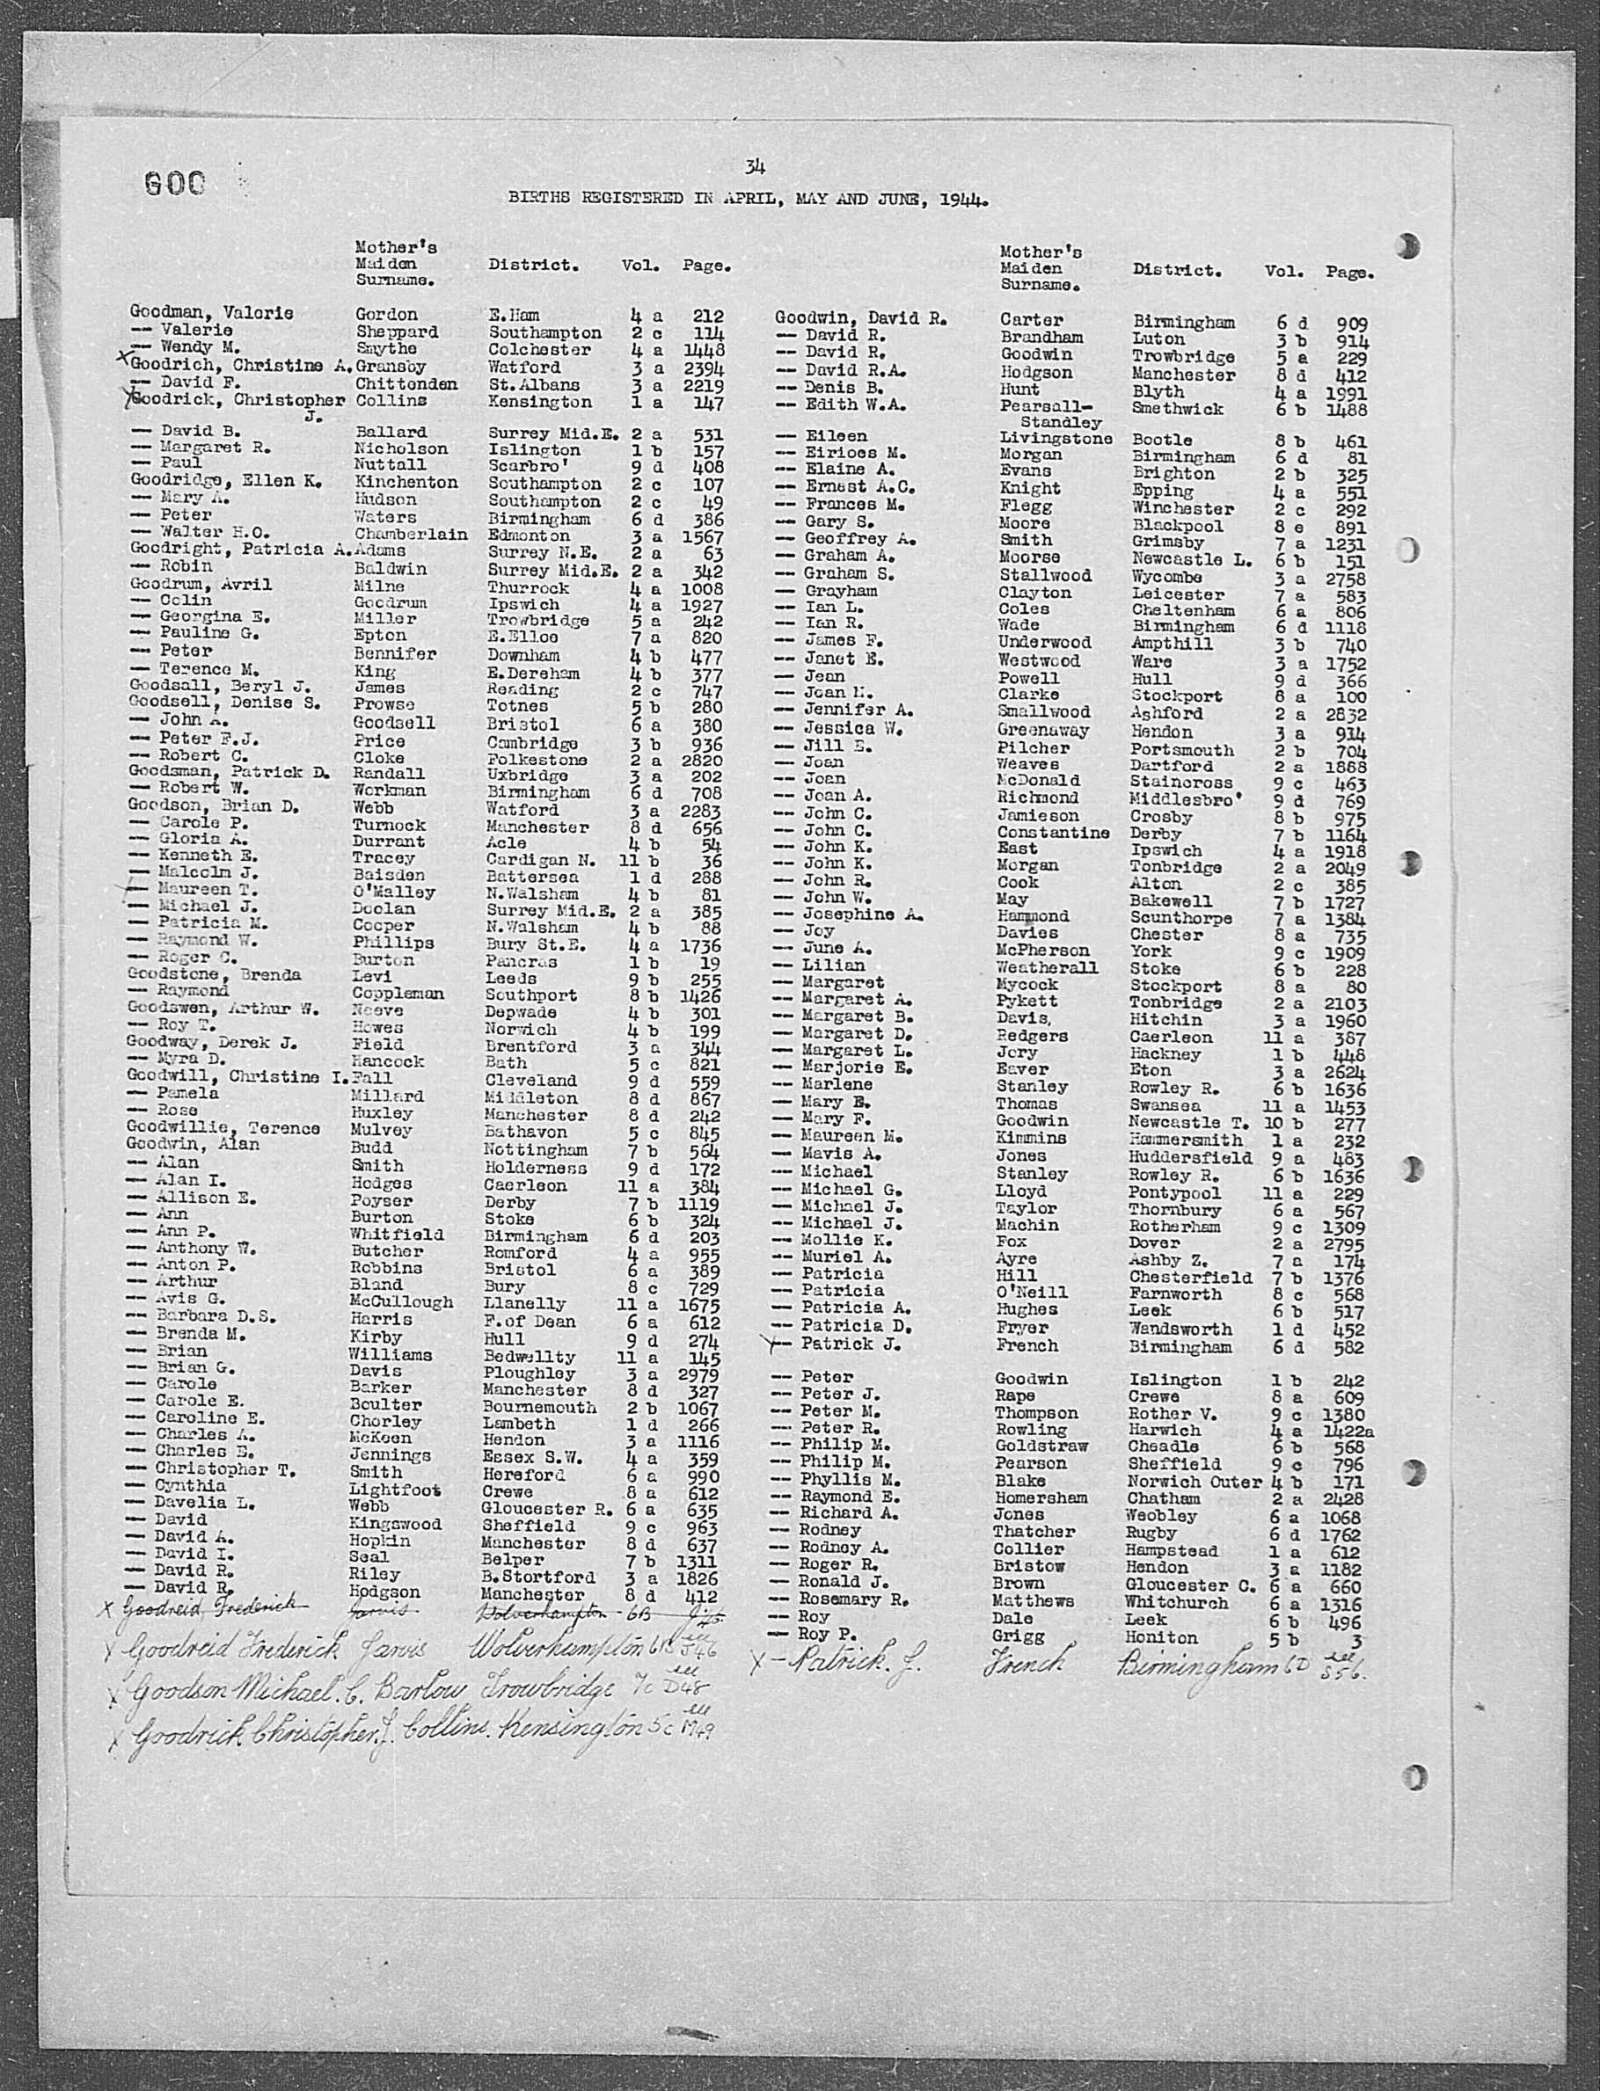 GOO
34
BIRTHS REGISTERED IN APRIL, MAY AND JUNE, 1944.
Mother's
Maiden District. Vol. Page.
Surname.
Goodman, Valerie Gordon E.Ham 4 a 212
— Valerie Sheppard Southampton 2 c 114
— Wendy M. Smythe Colchester 4 a 1448
Goodrich, Christine A. Gransby Watford 3 a 2394
— David F. Chittenden St.Albans 3 a 2219
Goodrick, Christopher Collins Kensington 1 a 147
J.
— David B. Ballard Surrey Mid.E. 2 a 531
— Margaret R. Nicholson Islington 1 b 157
— Paul Nuttall Scarbro' 9 d 408
Goodridge, Ellen K. Kinchenton Southampton 2 c 107
— Mary A. Hudson Southampton 2 c 49
— Peter Waters Birmingham 6 d 386
— Walter H.O. Chamberlain Edmonton 3 a 1567
Goodright, Patricia A. Adams Surrey N.E. 2 a 63
— Robin Baldwin Surrey Mid.E. 2 a 342
Goodrum, Avril Milne Thurrock 4 a 1008
— Colin Goodrum Ipswich 4 a 1927
— Georgina E. Miller Trowbridge 5 a 242
— Pauline G. Epton E.Elloe 7 a 820
— Peter Bennifer Downham 4 b 477
— Terence M. King E.Dereham 4 b 377
Goodsall, Beryl J. James Reading 2 c 747
Goodsell, Denise S. Prowse Totnes 5 b 280
— John A. Goodsell Bristol 6 a 380
— Peter F.J. Price Cambridge 3 b 936
— Robert C. Cloke Folkestone 2 a 2820
Goodsman, Patrick D. Randall Uxbridge 3 a 202
— Robert W. Workman Birmingham 6 d 708
Goodson, Brian D. Webb Watford 3 a 2283
— Carole P. Turnock Manchester 8 d 656
— Gloria A. Durrant Acle 4 b 54
— Kenneth E. Tracey Cardigan N. 11 b 36
— Malcolm J. Baisden Battersea 1 d 288
— Maureen T. O'Malley N.Walsham 4 b 81
— Michael J. Doolan Surrey Mid.E. 2 a 385
— Patricia M. Cooper N.Walsham 4 b 88
— Raymond W. Phillips Bury St.E. 4 a 1736
— Roger C. Burton Pancras 1 b 19
Goodstone, Brenda Levi Leeds 9 b 255
— Raymond Coppleman Southport 8 b 1426
Goodswen, Arthur W. Neeve Depwade 4 b 301
— Roy T. Howes Norwich 4 b 199
Goodway, Derek J. Field Brentford 3 a 344
— Myra D. Hancock Bath 5 c 821
Goodwill, Christine I. Fall Cleveland 9 d 559
— Pamela Millard Middleton 8 d 867
— Rose Huxley Manchester 8 d 242
Goodwillie, Terence Mulvey Bathavon 5 c 845
Goodwin, Alan Budd Nottingham 7 b 564
— Alan Smith Holderness 9 d 172
— Alan I. Hodges Caerleon 11 a 384
— Allison E. Poyser Derby 7 b 1119
— Ann Burton Stoke 6 b 324
— Ann P. Whitfield Birmingham 6 d 203
— Anthony W. Butcher Romford 4 a 955
— Anton P. Robbins Bristol 6 a 389
— Arthur Bland Bury 8 c 729
— Avis G. McCullough Llanelly 11 a 1675
— Barbara D.S. Harris F.of Dean 6 a 612
— Brenda M. Kirby Hull 9 d 274
— Brian Williams Bedwellty 11 a 145
— Brian G. Davis Ploughley 3 a 2979
— Carole Barker Manchester 8 d 327
— Carole E. Boulter Bournemouth 2 b 1067
— Caroline E. Chorley Lambeth 1 d 266
— Charles A. McKeen Hendon 3 a 1116
— Charles E. Jennings Essex S.W. 4 a 359
— Christopher T. Smith Hereford 6 a 990
— Cynthia Lightfoot Crewe 8 a 612
— Davelia L. Webb Gloucester R. 6 a 635
— David Kingswood Sheffield 9 c 963
— David A. Hopkin Manchester 8 d 637
— David I. Seal Belper 7 b 1311
— David R. Riley B.Stortford 3 a 1826
— David R. Hodgson Manchester 8 d 412
X Goodreid, Frederick Jarvis Wolverhampton 6B
X Goodreid Frederick Jarvis Wolverhampton 6B J46
X Goodson Michael. C. Barlow Trowbridge 7c D48
X Goodrick Christopher. J. Collins. Kensington 5c M49
Mother's
Maiden District. Vol. Page.
Surname.
Goodwin, David R. Carter Birmingham 6 d 909
— David R. Brandham Luton 3 b 914
— David R. Goodwin Trowbridge 5 a 229
— David R.A. Hodgson Manchester 8 d 412
— Denis B. Hunt Blyth 4 a 1991
— Edith W.A. Pearsall- Smethwick 6 b 1488
Standley
— Eileen Livingstone Bootle 8 b 461
— Eirioes M. Morgan Birmingham 6 d 81
— Elaine A. Evans Brighton 2 b 325
— Ernest A.C. Knight Epping 4 a 551
— Frances M. Flegg Winchester 2 c 292
— Gary S. Moore Blackpool 8 e 891
— Geoffrey A. Smith Grimsby 7 a 1231
— Graham A. Moorse Newcastle L. 6 b 151
— Graham S. Stallwood Wycombe 3 a 2758
— Grayham Clayton Leicester 7 a 583
— Ian L. Coles Cheltenham 6 a 806
— Ian R. Wade Birmingham 6 d 1118
— James F. Underwood Ampthill 3 b 740
— Janet E. Westwood Ware 3 a 1752
— Jean Powell Hull 9 d 366
— Jean M. Clarke Stockport 8 a 100
— Jennifer A. Smallwood Ashford 2 a 2832
— Jessica W. Greenaway Hendon 3 a 914
— Jill E. Pilcher Portsmouth 2 b 704
— Joan Weaves Dartford 2 a 1888
— Joan McDonald Staincross 9 c 463
— Joan A. Richmond Middlesbro' 9 d 769
— John C. Jamieson Crosby 8 b 975
— John C. Constantine Derby 7 b 1164
— John K. East Ipswich 4 a 1918
— John K. Morgan Tonbridge 2 a 2049
— John R. Cook Alton 2 c 385
— John W. May Bakewell 7 b 1727
— Josephine A. Hammond Scunthorpe 7 a 1384
— Joy Davies Chester 8 a 735
— June A. McPherson York 9 c 1909
— Lilian Weatherall Stoke 6 b 228
— Margaret Mycock Stockport 8 a 80
— Margaret A. Pykett Tonbridge 2 a 2103
— Margaret B. Davis, Hitchin 3 a 1960
— Margaret D. Redgers Caerleon 11 a 387
— Margaret L. Jory Hackney 1 b 448
— Marjorie E. Eaver Eton 3 a 2624
— Marlene Stanley Rowley R. 6 b 1636
— Mary E. Thomas Swansea 11 a 1453
— Mary F. Goodwin Newcastle T. 10 b 277
— Maureen M. Kimmins Hammersmith 1 a 232
— Mavis A. Jones Huddersfield 9 a 483
— Michael Stanley Rowley R. 6 b 1636
— Michael G. Lloyd Pontypool 11 a 229
— Michael J. Taylor Thornbury 6 a 567
— Michael J. Machin Rotherham 9 c 1309
— Mollie K. Fox Dover 2 a 2795
— Muriel A. Ayre Ashby Z. 7 a 174
— Patricia Hill Chesterfield 7 b 1376
— Patricia O'Neill Farnworth 8 c 568
— Patricia A. Hughes Leek 6 b 517
— Patricia D. Fryer Wandsworth 1 d 452
— Patrick J. French Birmingham 6 d 582
— Peter Goodwin Islington 1 b 242
— Peter J. Rape Crewe 8 a 609
— Peter M. Thompson Rother V. 9 c 1380
— Peter R. Rowling Harwich 4 a 1422a
— Philip M. Goldstraw Cheadle 6 b 568
— Philip M. Pearson Sheffield 9 c 796
— Phyllis M. Blake Norwich Outer 4 b 171
— Raymond E. Homersham Chatham 2 a 2428
— Richard A. Jones Weobley 6 a 1068
— Rodney Thatcher Rugby 6 d 1762
— Rodney A. Collier Hampstead 1 a 612
— Roger R. Bristow Hendon 3 a 1182
— Ronald J. Brown Gloucester C. 6 a 660
— Rosemary R. Matthews Whitchurch 6 a 1316
— Roy Dale Leek 6 b 496
— Roy P. Grigg Honiton 5 b 3
X — Patrick. J. French Birmingham 6D S56.